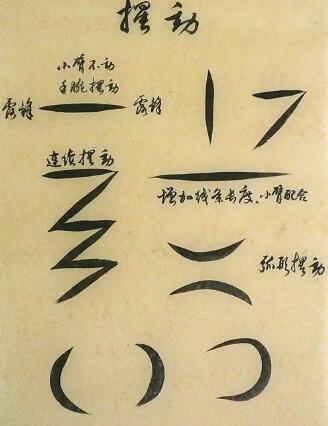 摆动
小臂不动
手腕摆动
露锋
露锋
连续摆动
增加线条长度、小臂配合
弧形摆动